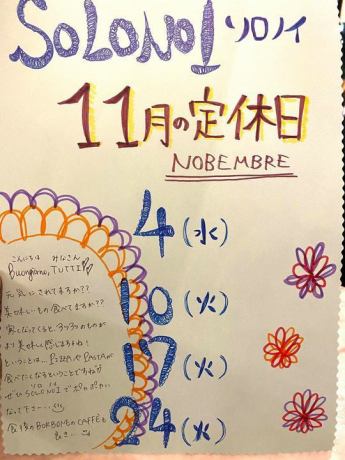 SOLONOI ソロノイ
11月の定休日
NOBEMBRE
4(水)
10(火)
17(火)
24(火)
こんにちは みなさん
Buongiorno, TUTTI
元気にされてますか??
美味しいもの食べてますか??
寒くなってくると、アツアツのものが
より美味しく感じますよね!
ということは... PIZZAやPASTAが
食べたくなるということですね
ぜひSOLONOIでポカポカに
ソロノイ
なって下さ〜い
食後のBORBONEのCAFFEも